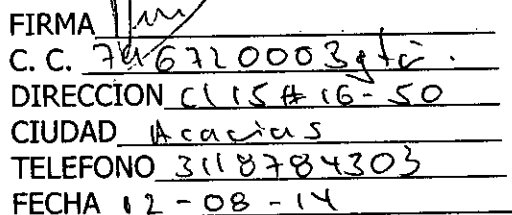 FIRMA
C. C. 746720003
DIRECCION Cl 15 # 16-50
CIUDAD Acacias
TELEFONO 3118784303
FECHA 12-08-14